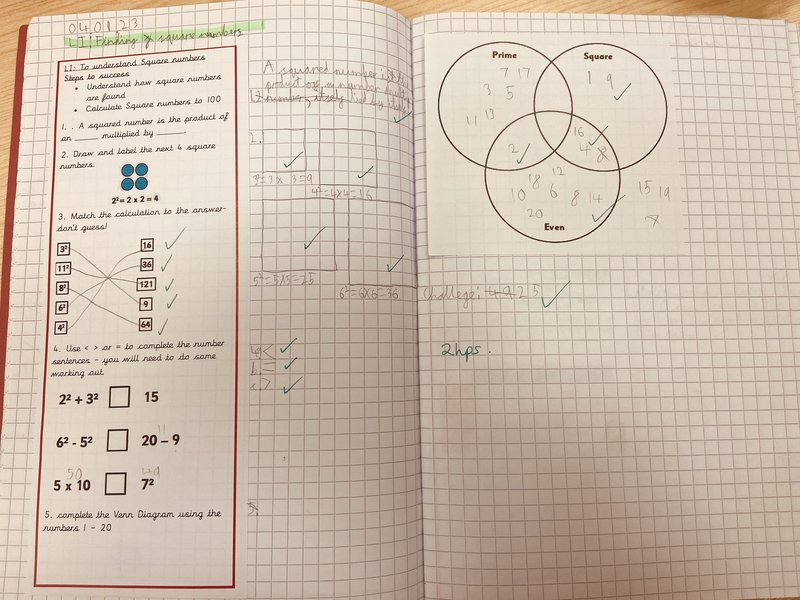 040123
LI: Finding square numbers
LI: To understand Square numbers
Steps to success
• Understand how square numbers
are found
• Calculate Square numbers to 100
1. . A squared number is the product of
an _____ multiplied by _____.
2. Draw and label the next 4 square
numbers.
2² = 2 x 2 = 4
3. Match the calculation to the answer-
don't guess!
3² 16
11² 36
8² 121
6² 9
4² 64
4. Use < > or = to complete the number
sentences - you will need to do some
working out.
2² + 3² 15
11
6² - 5² 20 - 9
50 49
5 x 10 7²
5. complete the Venn Diagram using the
numbers 1 - 20
A squared number is the
product of a number
itself by itself
2.
3²=3x3=9
4²=4x4=16
5²=5x5=25
6²=6x6=36
<
b. =
>
5.
Prime Square
7 17
3 5
11 13
1 9
2
16
4
18 12
10 6 8 14
20
Even
15 19
Challege: 49 25
2hps.